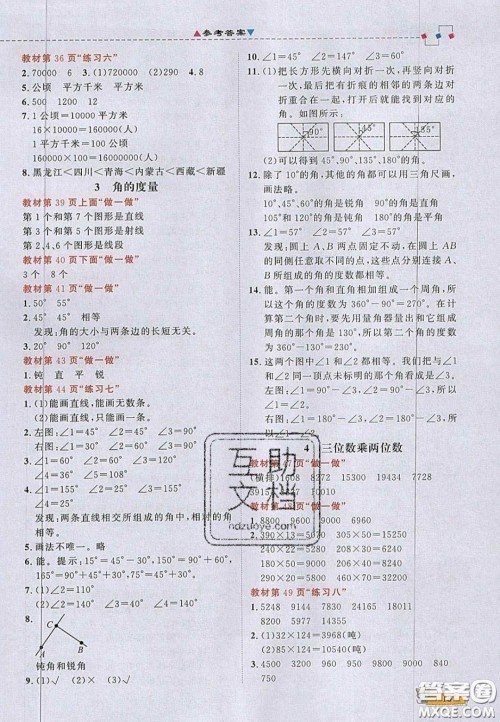 参考答案
教材第36页“练习六”
2.70000 6 3.(1)720000 (2)290 4.8
5.公顷 平方千米 平方千米
6.500 1200 12
7.1公顷=10000平方米
16×10000=160000(人)
1平方千米=100公顷
160000×100=16000000(人)
8.黑龙江<四川<青海<内蒙古<西藏<新疆
3 角的度量
教材第39页上面“做一做”
第1个和第7个图形是直线
第3个和第5个图形是射线
第2个和第6个图形是线段
教材第40页下面“做一做”
3个 8个
教材第41页“做一做”
1.50° 55°
发现:角的大小与两条边的长短无关。
2.90° 45° 45°
教材第43页“做一做”
1.钝 直 平 锐
教材第44页“练习七”
1.(1)能画直线,能画无数条。
(2)能画直线,能画一条。
2.左图:∠1=45° ∠2=45° ∠3=90°
右图:∠1=30° ∠2=60° ∠3=90°
3.∠1=60° ∠2=
4.∠1=60° ∠2=
∠4=120°
发现:两条直线相交所组成的角中,相对的角相等。
5.画法不唯一。略
6.能。提示:15°=45°-30° 150°=60°+90°
165°=180°-15° 75°=45°+30°
7.(1)30° (2)90° (3)120° (4)180°
8.
C
A
B
钝角和锐角
9.(1)√ (2)× (3)√
10.∠1=45° ∠2=45° ∠3=90°
11.(1)把长方形先横向对折一次,再纵向对折
一次,最后把有折痕的相邻的两条边对
折重合在一起,打开后就能找到对应的
角。
90° 45° 135°
(2)可以得到45°、90°、135°、180°的角。
12.除了10°的角,其他角都可以用三角尺画,
画法略。
10°、45°、60°的角是锐角 90°的角是直角
105°、120°的角是钝角 180°的角是平角
13.∠1=57° ∠2=57° ∠3=57°
发现:圆上A、B两点固定不动,在圆上AB
的同侧任意取不同的点,这些点与A、B连
接后所组成的角的度数相等。
14.能。因为这两个角组成一个周角,所以
用360°减去第一个角的度数,在计算
第二个角时,要先用量角器量出和它组成
周角的另一个角的度数为130°,再计算
360°-130°=230°。
15.这两个图中∠1和∠2相等,因为它们
和∠1、∠2同一顶点未标明的那个角都组
成了直角。
左图:∠1=60° ∠2=60°
右图:∠1=50° ∠2=50°
4 三位数乘两位数
教材第47页“做一做”
(横排)1608 8272 15329 4326
39150
教材第48页“做一做”
1.8800 4690 9100 6960
2.390×13=5070 305×50=15250
240×30=7200
380×22=8360
教材第49页“练习八”
1.5248 8149
2.(1)132×24=3168(吨)
(2)124×32=3968(吨)
3.4500 9860
750
互助文档
hdzuoye.com
答案圈
MXQE.COM